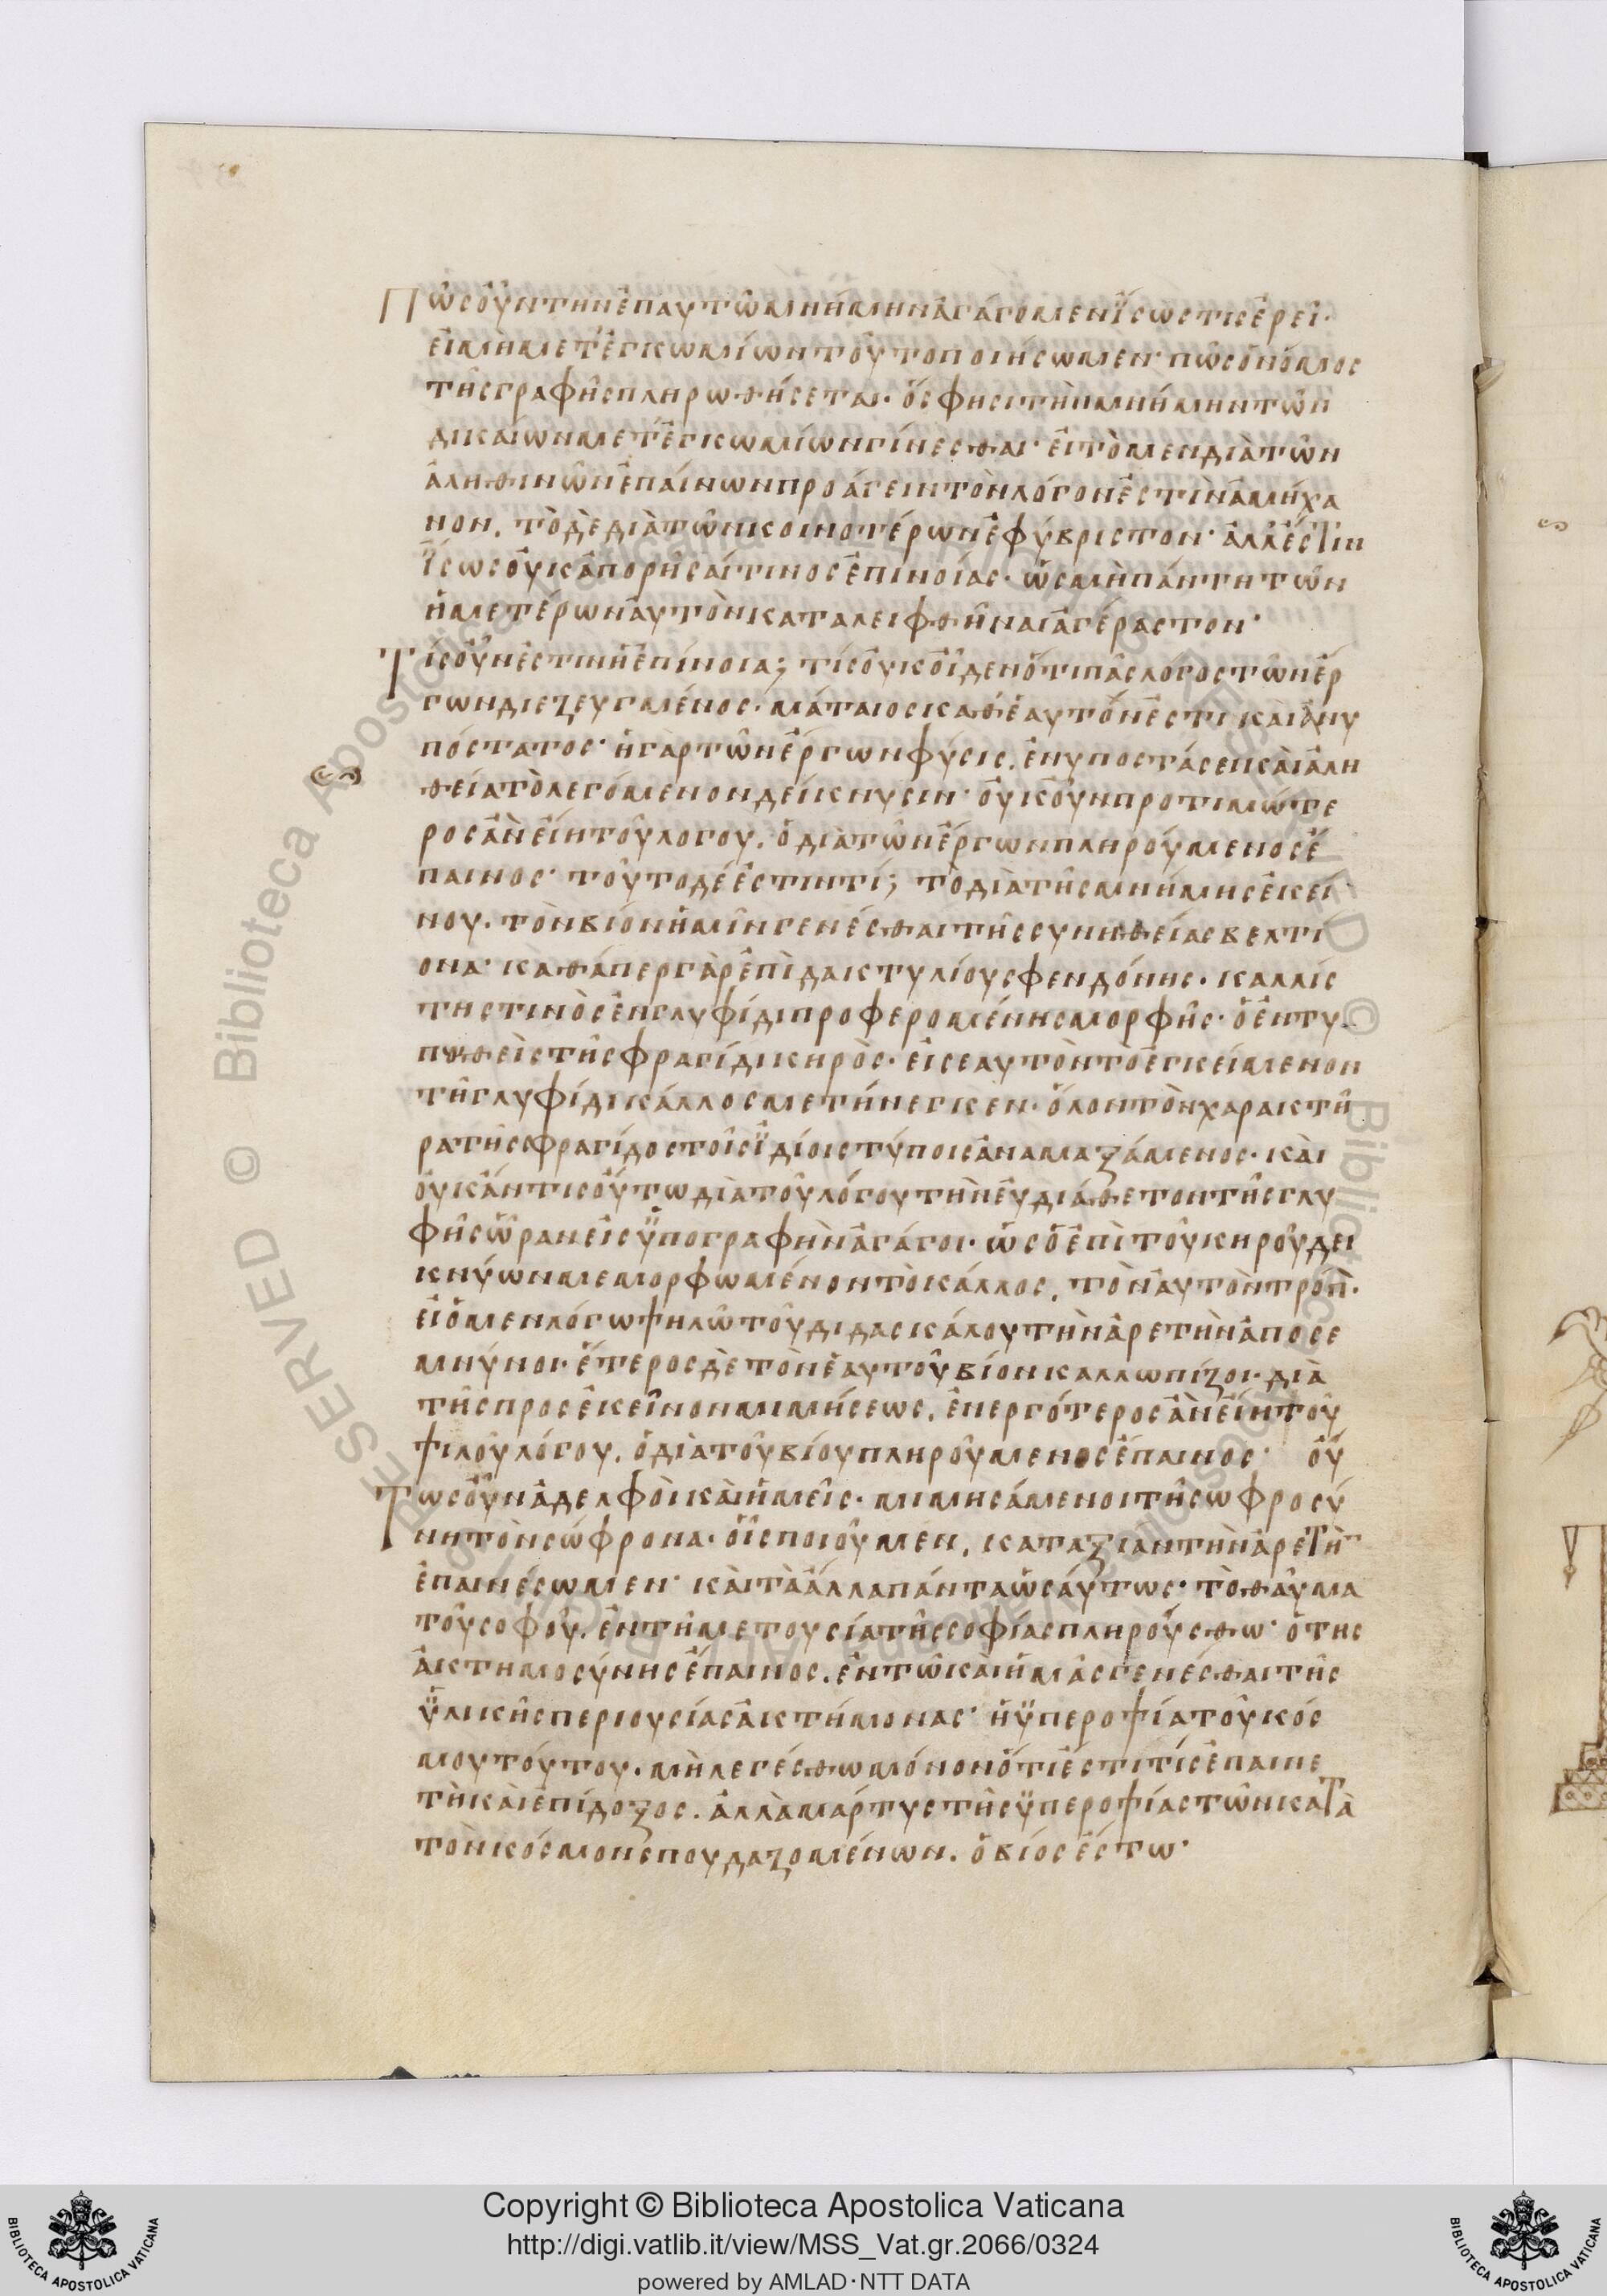 Πῶς οὖν τὴν ἐπ αυτῶ μνήμην ἀγάγομεν ἴσως τις ἐρεῖ·
εἰ μὴ μετ ἐγκωμίων τοῦτο ποιήσωμεν· πῶς ὁ νόμος
τῆς γραφῆς πληρωθήσεται· ὅς φησι τὴν μνήμην τῶν
δικαίων μετ ἐγκωμίων γίνεσθαι· εἰ τὸ μεν διὰ τῶν
ἀληθινῶν ἐπαίνων προάγειν τὸν λόγον ἐστὶν ἀμήχα
νον, τὸ δὲ διὰ τῶν κοινοτέρων ἐφύβριστον· ἀλλ ἔστιν
ἴσως οὐκ ἀπορῆσαί τινος ἐπινοίας· ὡς μὴ πάντη τῶν
ἡμετέρων αυτὸν καταλειφθῆναι ἀγέραστον·
Τίς οὖν ἐστιν ἡ ἐπίνοια; τίς οὐκ οἶδεν ὅτι πᾶς λόγος τῶν ἔρ
γων διεζευγμένος· μάταιος καθ ἑαυτόν ἐστι καὶ ἀνυ
πόστατος· ἡ γὰρ τῶν ἔργων φύσις, ἐνυποστάσει καὶ ἀλη
θεία τὸ λεγόμενον δείκνυσιν· οὐκ οὖν προτιμώτε
ρος ἂν εἴη τοῦ λογου, ὁ διὰ τῶν ἔργων πληρούμενος ἔ
παινος· τοῦτο δέ ἐστιν τί; τὸ διὰ τῆς μνήμης ἐκεί
νου, τὸν βίον ἡμῖν γενέσθαι τῆς συνηθείας βελτί
ονα· καθάπερ γὰρ ἐπὶ δακτυλίου σφενδόνης· καλλίς
της τινὸς ἐν γλυφίδι προφερομένης μορφῆς· ὁ ἐντυ
πωθεὶς τῆ σφραγίδι κηρὸς· εἰς εαυτὸν τὸ ἐγκείμενον
τῆ γλυφίδι κάλλος μετήνεγκεν· ὅλον τὸν χαρακτῆ
ρα τῆς σφραγίδος τοῖς ἰδίοις τύποις ἀναμαξάμενος· καὶ
οὐκ ἄν τις οὕτω διὰ τοῦ λόγου τὴν εὐδιάθετον τῆς γλυ
φῆς ὥραν εἰς ὑπογραφὴν ἀγάγοι· ὡς ὁ ἐπὶ τοῦ κηροῦ δει
κνύων μεμορφωμένον τὸ κάλλος, τὸν αυτὸν τρόπ·
εἰ ὁ μεν λόγω ψηλῶ τοῦ διδασκάλου τὴν ἀρετὴν ἀποσε
μνύνοι· ἕτερος δὲ τὸν ἑαυτοῦ βίον καλλωπίζοι· διὰ
τῆς προς ἐκεῖνον μιμήσεως, ἐνεργότερος ἂν εἴη τοῦ
ψιλοῦ λόγου, ὁ διὰ τοῦ βίου πληροῦμενος ἔπαινος· οὕ
Τως οὖν ἀδελφὸι καὶ ἡμεῖς· μιμησάμενοι τῆ σωφροσύ
νη τὸν σώφρονα· οἷς ποιοῦμεν, καταξίαν τὴν ἀρετὴν
ἐπαινέσωμεν· καὶ τὰ ἄλλα πάντα ὡσάυτως· τὸ θαῦμα
τοῦ σοφοῦ, ἐν τῆ μετουσία τῆς σοφίας πληρούσθω· ὁ της
ἀκτημοσύνης ἔπαινος, ἐν τῶ καὶ ἡμᾶς γενέσθαι τῆς
ὑλικῆς περιουσίας ἀκτήμονας· ἡ ὑπεροψία τοῦ κός
μου τούτου· μὴ λεγέσθω μόνον ὅτι ἐστί τίς ἐπαινε
τὴ καὶ ἐπίδοξος, ἀλλὰ μάρτυς τῆς ὑπεροψίας τῶν κατὰ
τὸν κόσμον σπουδαζομένων, ὁ βίος ἔστω·
© Biblioteca Apostolica Vaticana ALL RIGHTS RESERVED
Copyright © Biblioteca Apostolica Vaticana
http://digi.vatlib.it/view/MSS_Vat.gr.2066/0324
powered by AMLAD·NTT DATA
BIBLIOTECA APOSTOLICA VATICANA
BIBLIOTECA APOSTOLICA VATICANA